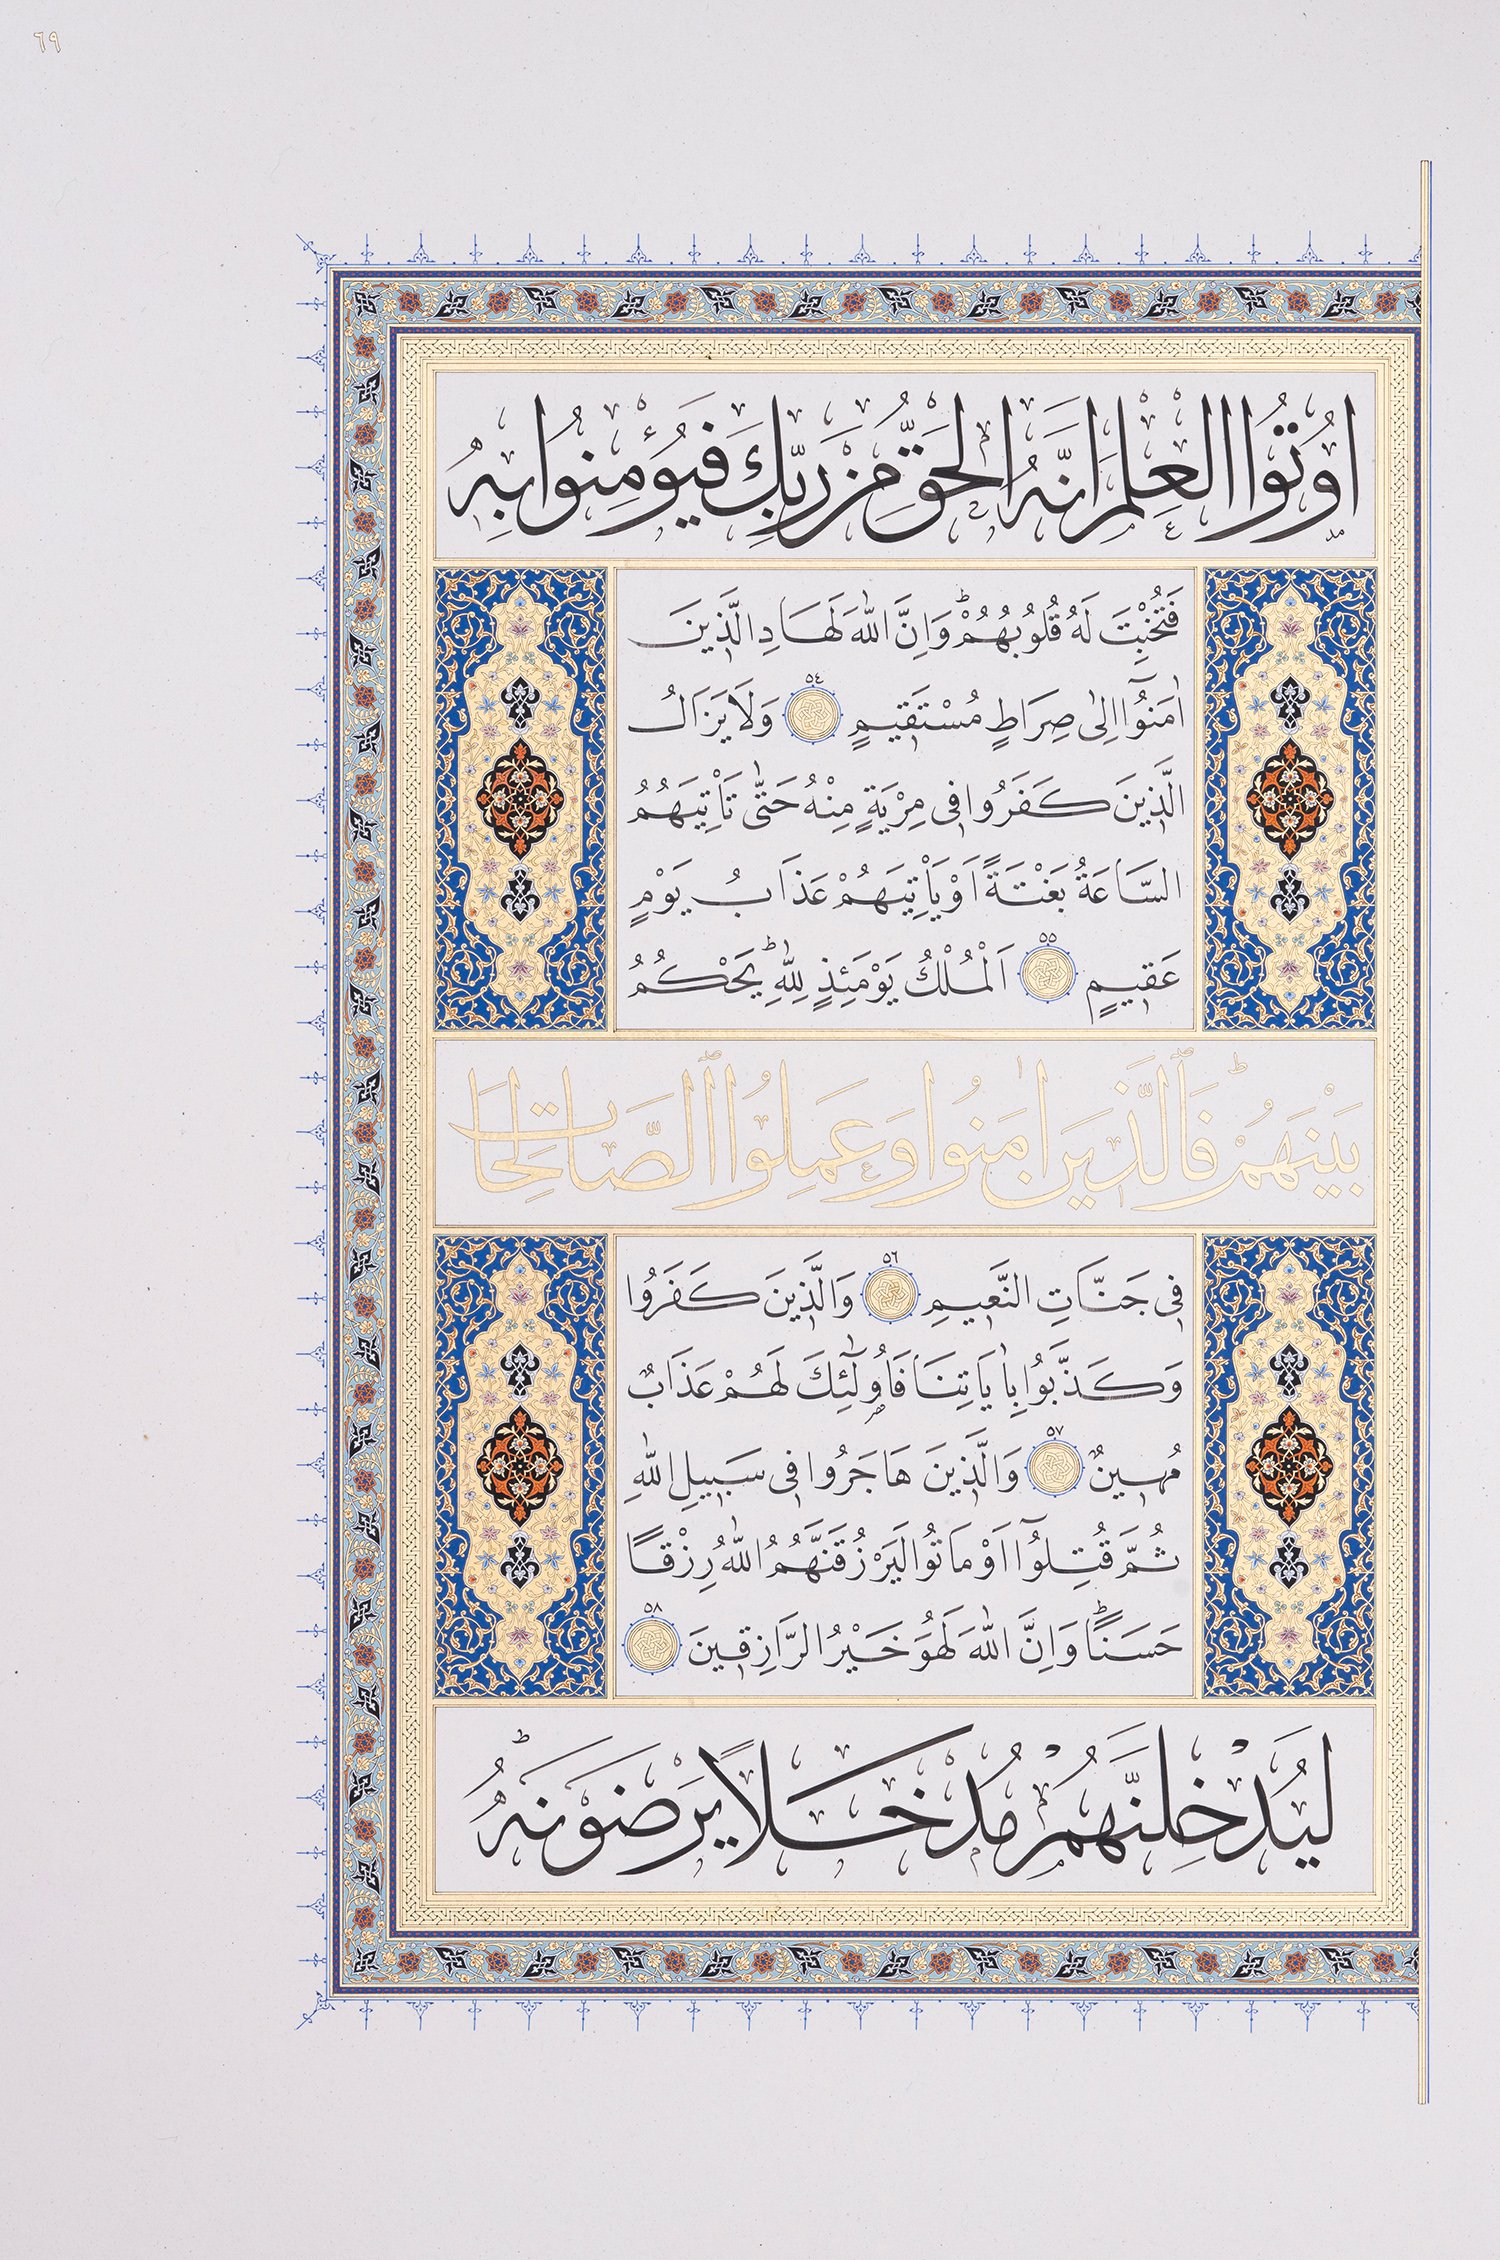 ٦٩
اُوتُوا الْعِلْمَ اَنَّهُ الْحَقُّ مِنْ رَبِّكَ فَيُؤْمِنُوا بِهٖ
فَتُخْبِتَ لَهُ قُلُوبُهُمْؕ وَاِنَّ اللّٰهَ لَهَادِ الَّذٖينَ
اٰمَنُٓوا اِلٰى صِرَاطٍ مُسْتَقٖيمٍ ٥٤ وَلَا يَزَالُ
الَّذٖينَ كَفَرُوا فٖى مِرْيَةٍ مِنْهُ حَتّٰى تَأْتِيَهُمُ
السَّاعَةُ بَغْتَةً اَوْ يَأْتِيَهُمْ عَذَابُ يَوْمٍ
عَقٖيمٍ ٥٥ اَلْمُلْكُ يَوْمَئِذٍ لِلّٰهِؕ يَحْكُمُ
بَيْنَهُمْؕ فَالَّذٖينَ اٰمَنُوا وَعَمِلُوا الصَّالِحَاتِ
فٖى جَنَّاتِ النَّعٖيمِ ٥٦ وَالَّذٖينَ كَفَرُوا
وَكَذَّبُوا بِاٰيَاتِنَا فَاُو۬لٰٓئِكَ لَهُمْ عَذَابٌ
مُهٖينٌ ٥٧ وَالَّذٖينَ هَاجَرُوا فٖى سَبٖيلِ اللّٰهِ
ثُمَّ قُتِلُٓوا اَوْ مَاتُوا لَيَرْزُقَنَّهُمُ اللّٰهُ رِزْقًا
حَسَنًاؕ وَاِنَّ اللّٰهَ لَهُوَ خَيْرُ الرَّازِقٖينَ ٥٨
لَيُدْخِلَنَّهُمْ مُدْخَلًا يَرْضَوْنَهُؕ